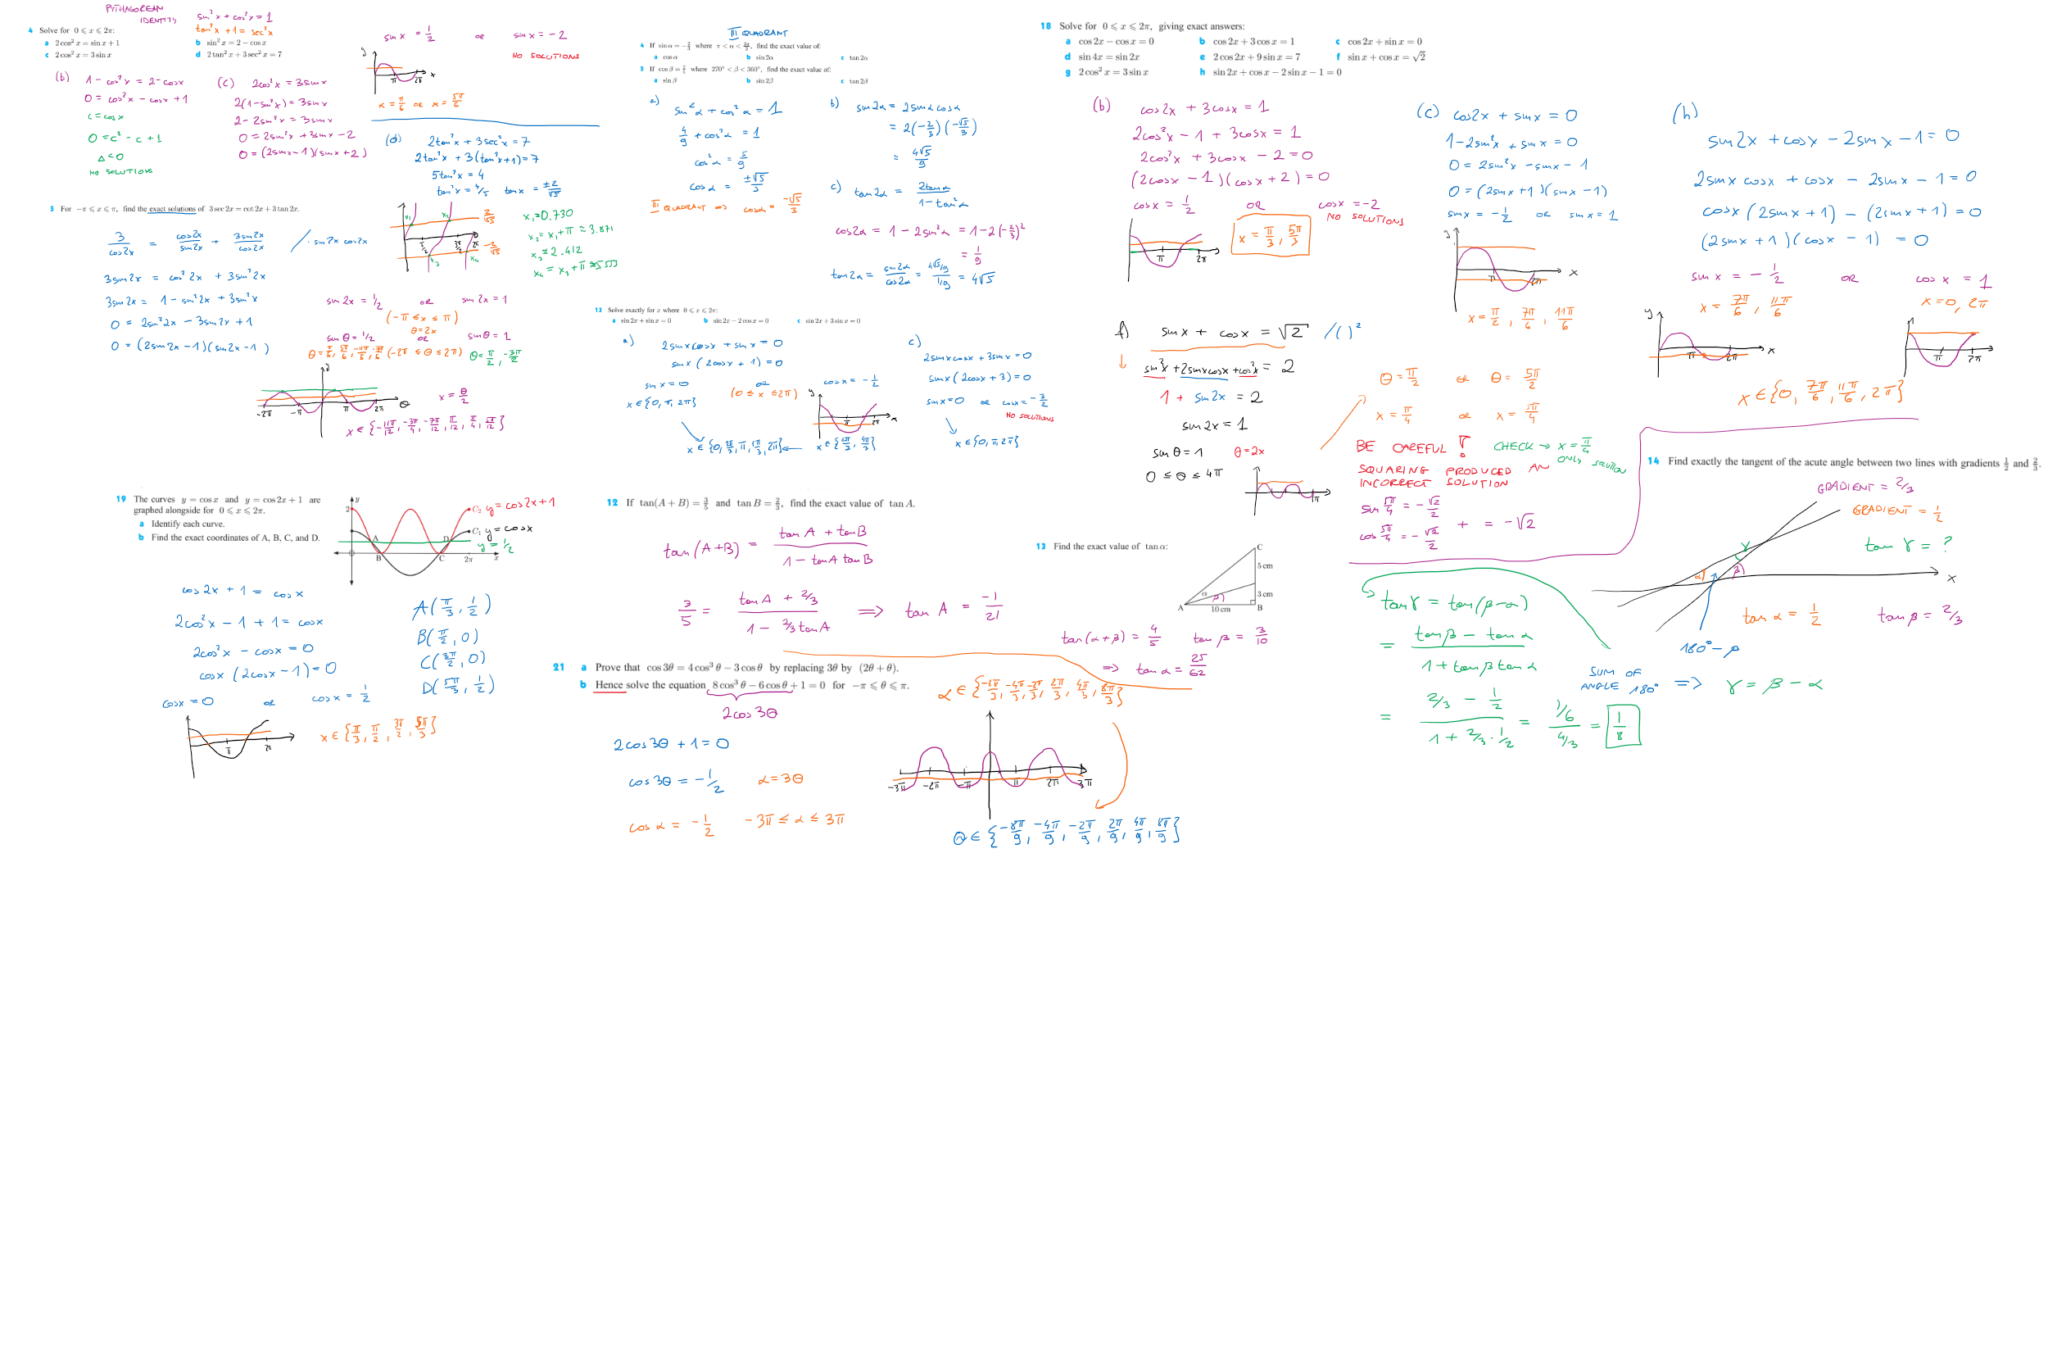 PYTHAGOREAN IDENTITY
sin²x + cos²x = 1
tan²x + 1 = sec²x
4 Solve for 0 ⩽ x ⩽ 2π:
a 2cos²x = sin x + 1
b sin²x = 2 − cos x
c 2cos²x = 3 sin x
d 2tan²x + 3sec²x = 7
(b) 1 − cos²x = 2 − cosx
0 = cos²x − cosx + 1
c = cosx
0 = c² − c + 1
Δ < 0
NO SOLUTIONS
(c) 2cos²x = 3sinx
2(1−sin²x) = 3sinx
2 − 2sin²x = 3sinx
0 = 2sin²x + 3sinx − 2
0 = (2sinx−1)(sinx+2)
sin x = 1/2 or sin x = −2
NO SOLUTIONS
y
x
π
2π
x = π/6 or x = 5π/2
(d) 2tan²x + 3sec²x = 7
2tan²x + 3(tan²x+1) = 7
5tan²x = 4
tan²x = 4/5 tanx = ±2/√5
x₁ = 0.730
x₂ = x₁ + π = 3.871
x₃ = 2.412
x₄ = x₃ + π = 5.553
5 For −π ⩽ x ⩽ π, find the exact solutions of 3 sec 2x = cot 2x + 3 tan 2x.
3/cos2x = cos2x/sin2x + 3sin2x/cos2x / · sin2x cos2x
3sin2x = cos²2x + 3sin²2x
3sin2x = 1 − sin²2x + 3sin²x
0 = 2sin²2x − 3sin2x + 1
0 = (2sin2x −1)(sin2x −1)
sin 2x = 1/2 or sin 2x = 1
(−π ≤ x ≤ π)
θ = 2x
sinθ = 1/2 or sinθ = 1
(−2π ≤ θ ≤ 2π) θ = π/2, −3π/2
−2π −π π 2π θ
x = θ/2
x ∈ {−11π/12, −3π/4, −7π/12, π/12, π/4, 5π/12}
III QUADRANT
4 If sin α = −2/3 where π < α < 3π/2, find the exact value of:
a cos α
b sin 2α
c tan 2α
5 If cos β = 2/5 where 270° < β < 360°, find the exact value of:
a sin β
b sin 2β
c tan 2β
a) sin²α + cos²α = 1
4/9 + cos²α = 1
cos²α = 5/9
cosα = ±√5/3
III QUADRANT ⇒ cosα = −√5/3
b) sin2α = 2sinα cosα
= 2(−2/3)(−√5/3)
= 4√5/9
c) tan2α = 2tanα/1 − tan²α
cos2α = 1 − 2sin²α = 1 − 2(−2/3)²
= 1/9
tan2α = sin2α/cos2α = 4√5/9/1/9 = 4√5
12 Solve exactly for x where 0 ⩽ x ⩽ 2π:
a sin 2x + sin x = 0
b sin 2x − 2 cos x = 0
c sin 2x + 3 sin x = 0
a) 2sinxcosx + sinx = 0
sinx (2cosx + 1) = 0
sinx = 0 or cosx = −1/2
x ∈ {0, π, 2π} (0 ≤ x ≤ 2π)
x ∈ {0, 2π/3, π, 4π/3, 2π} x ∈ {2π/3, 4π/3}
c) 2sinxcosx + 3sinx = 0
sinx (2cosx + 3) = 0
sinx = 0 or cosx = −3/2
NO SOLUTIONS
x ∈ {0, π, 2π}
18 Solve for 0 ⩽ x ⩽ 2π, giving exact answers:
a cos 2x − cos x = 0
b cos 2x + 3 cos x = 1
c cos 2x + sin x = 0
d sin 4x = sin 2x
e 2 cos 2x + 9 sin x = 7
f sin x + cos x = √2
g 2 cos²x = 3 sin x
h sin 2x + cos x − 2 sin x − 1 = 0
(b) cos2x + 3cosx = 1
2cos²x − 1 + 3cosx = 1
2cos²x + 3cosx − 2 = 0
(2cosx − 1)(cosx + 2) = 0
cosx = 1/2 OR cosx = −2
NO SOLUTIONS
x = π/3, 5π/3
π 2π
(c) cos2x + sinx = 0
1 − 2sin²x + sinx = 0
0 = 2sin²x − sinx − 1
0 = (2sinx + 1)(sinx −1)
sinx = −1/2 or sinx = 1
x = π/2, 7π/6, 11π/6
(h)
sin2x + cosx − 2sinx − 1 = 0
2sinx cosx + cosx − 2sinx − 1 = 0
cosx (2sinx + 1) − (2sinx + 1) = 0
(2sinx + 1)(cosx − 1) = 0
sin x = −1/2 OR cosx = 1
x = 7π/6, 11π/6 x = 0, 2π
x ∈ {0, 7π/6, 11π/6, 2π}
f) sinx + cosx = √2 /( )²
sin²x + 2sinxcosx + cos²x = 2
1 + sin2x = 2
sin2x = 1
sin θ = 1 θ = 2x
0 ≤ θ ≤ 4π
θ = π/2 or θ = 5π/2
x = π/4 or x = 5π/4
BE CAREFUL!
SQUARING PRODUCED AN
INCORRECT SOLUTION
CHECK → x = π/4
ONLY SOLUTION
sin 5π/4 = −√2/2
cos 5π/4 = −√2/2
+ = −√2
19 The curves y = cos x and y = cos 2x + 1 are
graphed alongside for 0 ⩽ x ⩽ 2π.
a Identify each curve.
b Find the exact coordinates of A, B, C, and D.
2
y
A B C D
2π x
C₂ y = cos2x+1
C₁ y = cosx
y = 1/2
cos2x + 1 = cosx
2cos²x − 1 + 1 = cosx
2cos²x − cosx = 0
cosx (2cosx −1) = 0
cosx = 0 or cosx = 1/2
x ∈ {π/3, π/2, 3π/2, 5π/3}
A(π/3, 1/2)
B(π/2, 0)
C(3π/2, 0)
D(5π/3, 1/2)
12 If tan(A + B) = 3/5 and tan B = 2/3, find the exact value of tan A.
tan(A+B) = tanA + tanB/1 − tanA tanB
3/5 = tanA + 2/3/1 − 2/3tanA ⇒ tan A = −1/21
13 Find the exact value of tan α:
C
5 cm
3 cm
A
α
β
10 cm
B
tan(α+β) = 4/5 tanβ = 3/10
⇒ tanα = 25/62
21 a Prove that cos 3θ = 4 cos³θ − 3 cos θ by replacing 3θ by (2θ + θ).
b Hence solve the equation 8 cos³θ − 6 cos θ + 1 = 0 for −π ⩽ θ ⩽ π.
2cos3θ
2cos3θ + 1 = 0
cos3θ = −1/2 α = 3θ
cosα = −1/2 −3π ≤ α ≤ 3π
α ∈ {−8π/3, −4π/3, −2π/3, 2π/3, 4π/3, 8π/3}
−3π −2π −π π 2π 3π
θ ∈ {−8π/9, −4π/9, −2π/9, 2π/9, 4π/9, 8π/9}
14 Find exactly the tangent of the acute angle between two lines with gradients 1/2 and 2/3.
GRADIENT = 2/3
GRADIENT = 1/2
tan γ = ?
α γ β x
180° − β
tanα = 1/2 tanβ = 2/3
SUM OF
ANGLE 180° ⇒ γ = β − α
tanγ = tan(β−α)
= tanβ − tanα/1 + tanβ tanα
= 2/3 − 1/2/1 + 2/3 · 1/2 = 1/6/4/3 = 1/8